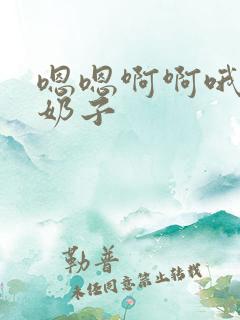 嗯嗯啊啊哦
奶子
勒普
未经同意禁止转载